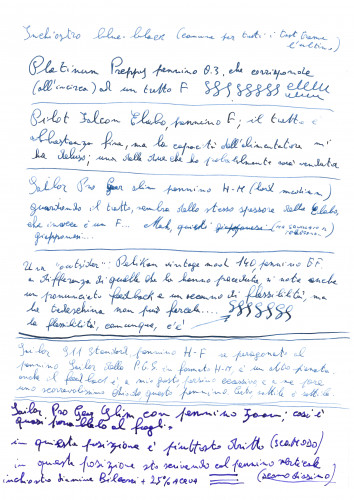 Inchiostro blue-black (comune per tutti i test tranne l'ultimo)
Platinum Preppy pennino 0.3, che corrisponde
(all'incirca) ad un tratto F §§§§§§§
Pilot Falcon Elabo pennino F; il tratto è
abbastanza fine, ma la capacità dell'alimentatore m'
ha deluso; una delle due che ho probabilmente verrà venduta
Sailor Pro Gear slim pennino H-M (hard medium)
guardando il tratto, sembra dello stesso spessore della Elabo,
che invece è un F... Mah, questi giapponesi
giapponesi...
Una "outsider": Pelikan vintage mod. 140, pennino EF.
A differenza di quelle che la hanno preceduta, si nota anche
un pronunciato feedback e un sacco di flessibilità, ma
la tedeschina non può farcela... §§§§§§
la flessibilità, comunque, c'è
Sailor 911 Standard pennino H-F se paragonato al
pennino Sailor della PGS in formato H-M, è un altro pianeta
anche il feedback è a mio gusto persino eccessivo e a me pare
uno scorrevolissimo
Sailor Pro Gear Slim, con pennino Zoom: così è
quasi parallelo al foglio
in questa posizione è piuttosto stretto (SCOMODO)
in questa posizione sto scrivendo col pennino verticale
(scomodissimo)
inchiostro diamine Bilberry + 25% ACQUA